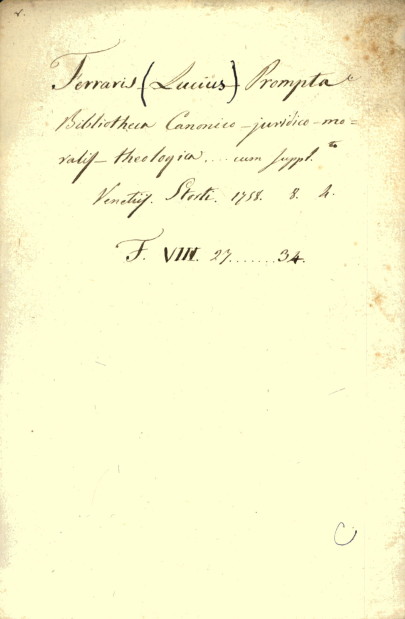 Ferraris (Lucius) Prompta
Bibliotheca Canonico-juridico-mo=
ralis-theologica.... cum suppl.to
Venetijs. Storti. 1758. 8. 4.
F. VIII. 27.......34.
C